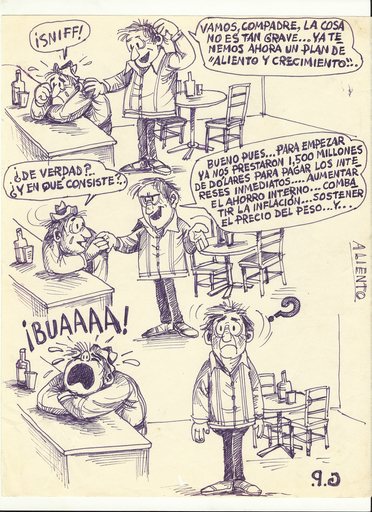 ¡SNIFF!
VAMOS, COMPADRE, LA COSA
NO ES TAN GRAVE... YA TE
NEMOS AHORA UN PLAN DE
"ALIENTO Y CRECIMIENTO"...
¿DE VERDAD?..
¿Y EN QUE CONSISTE?..
BUENO PUES... PARA EMPEZAR
YA NOS PRESTARON 1,500 MILLONES
DE DÓLARES PARA PAGAR LOS INTE
RESES INMEDIATOS.... AUMENTAR
EL AHORRO INTERNO... COMBA
TIR LA INFLACIÓN... SOSTENER
EL PRECIO DEL PESO... Y...
ALIENTO
¡BUAAAA!
?
G.P.